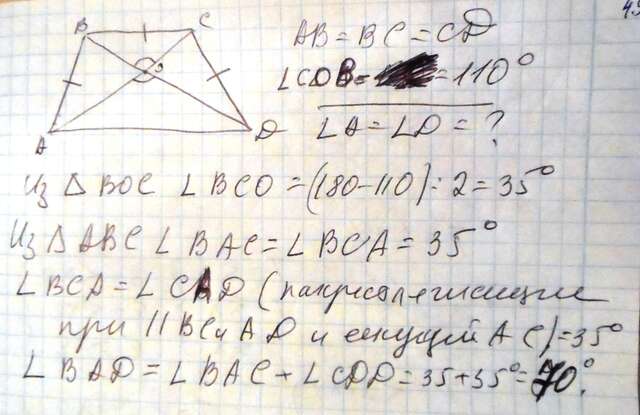 45
B
C
O
A
D
AB = BC = CD
∠COB = = 110°
∠A = ∠D = ?
Из △ BOC ∠ BCO = (180-110) : 2 = 35°
Из △ ABC ∠ BAC = ∠ BCA = 35°
∠ BCA = ∠ CAD (накрест лежащие
при || BC и AD и секущей AC) = 35°
∠ BAD = ∠ BAC + ∠ CDD = 35 + 35° = 70°.